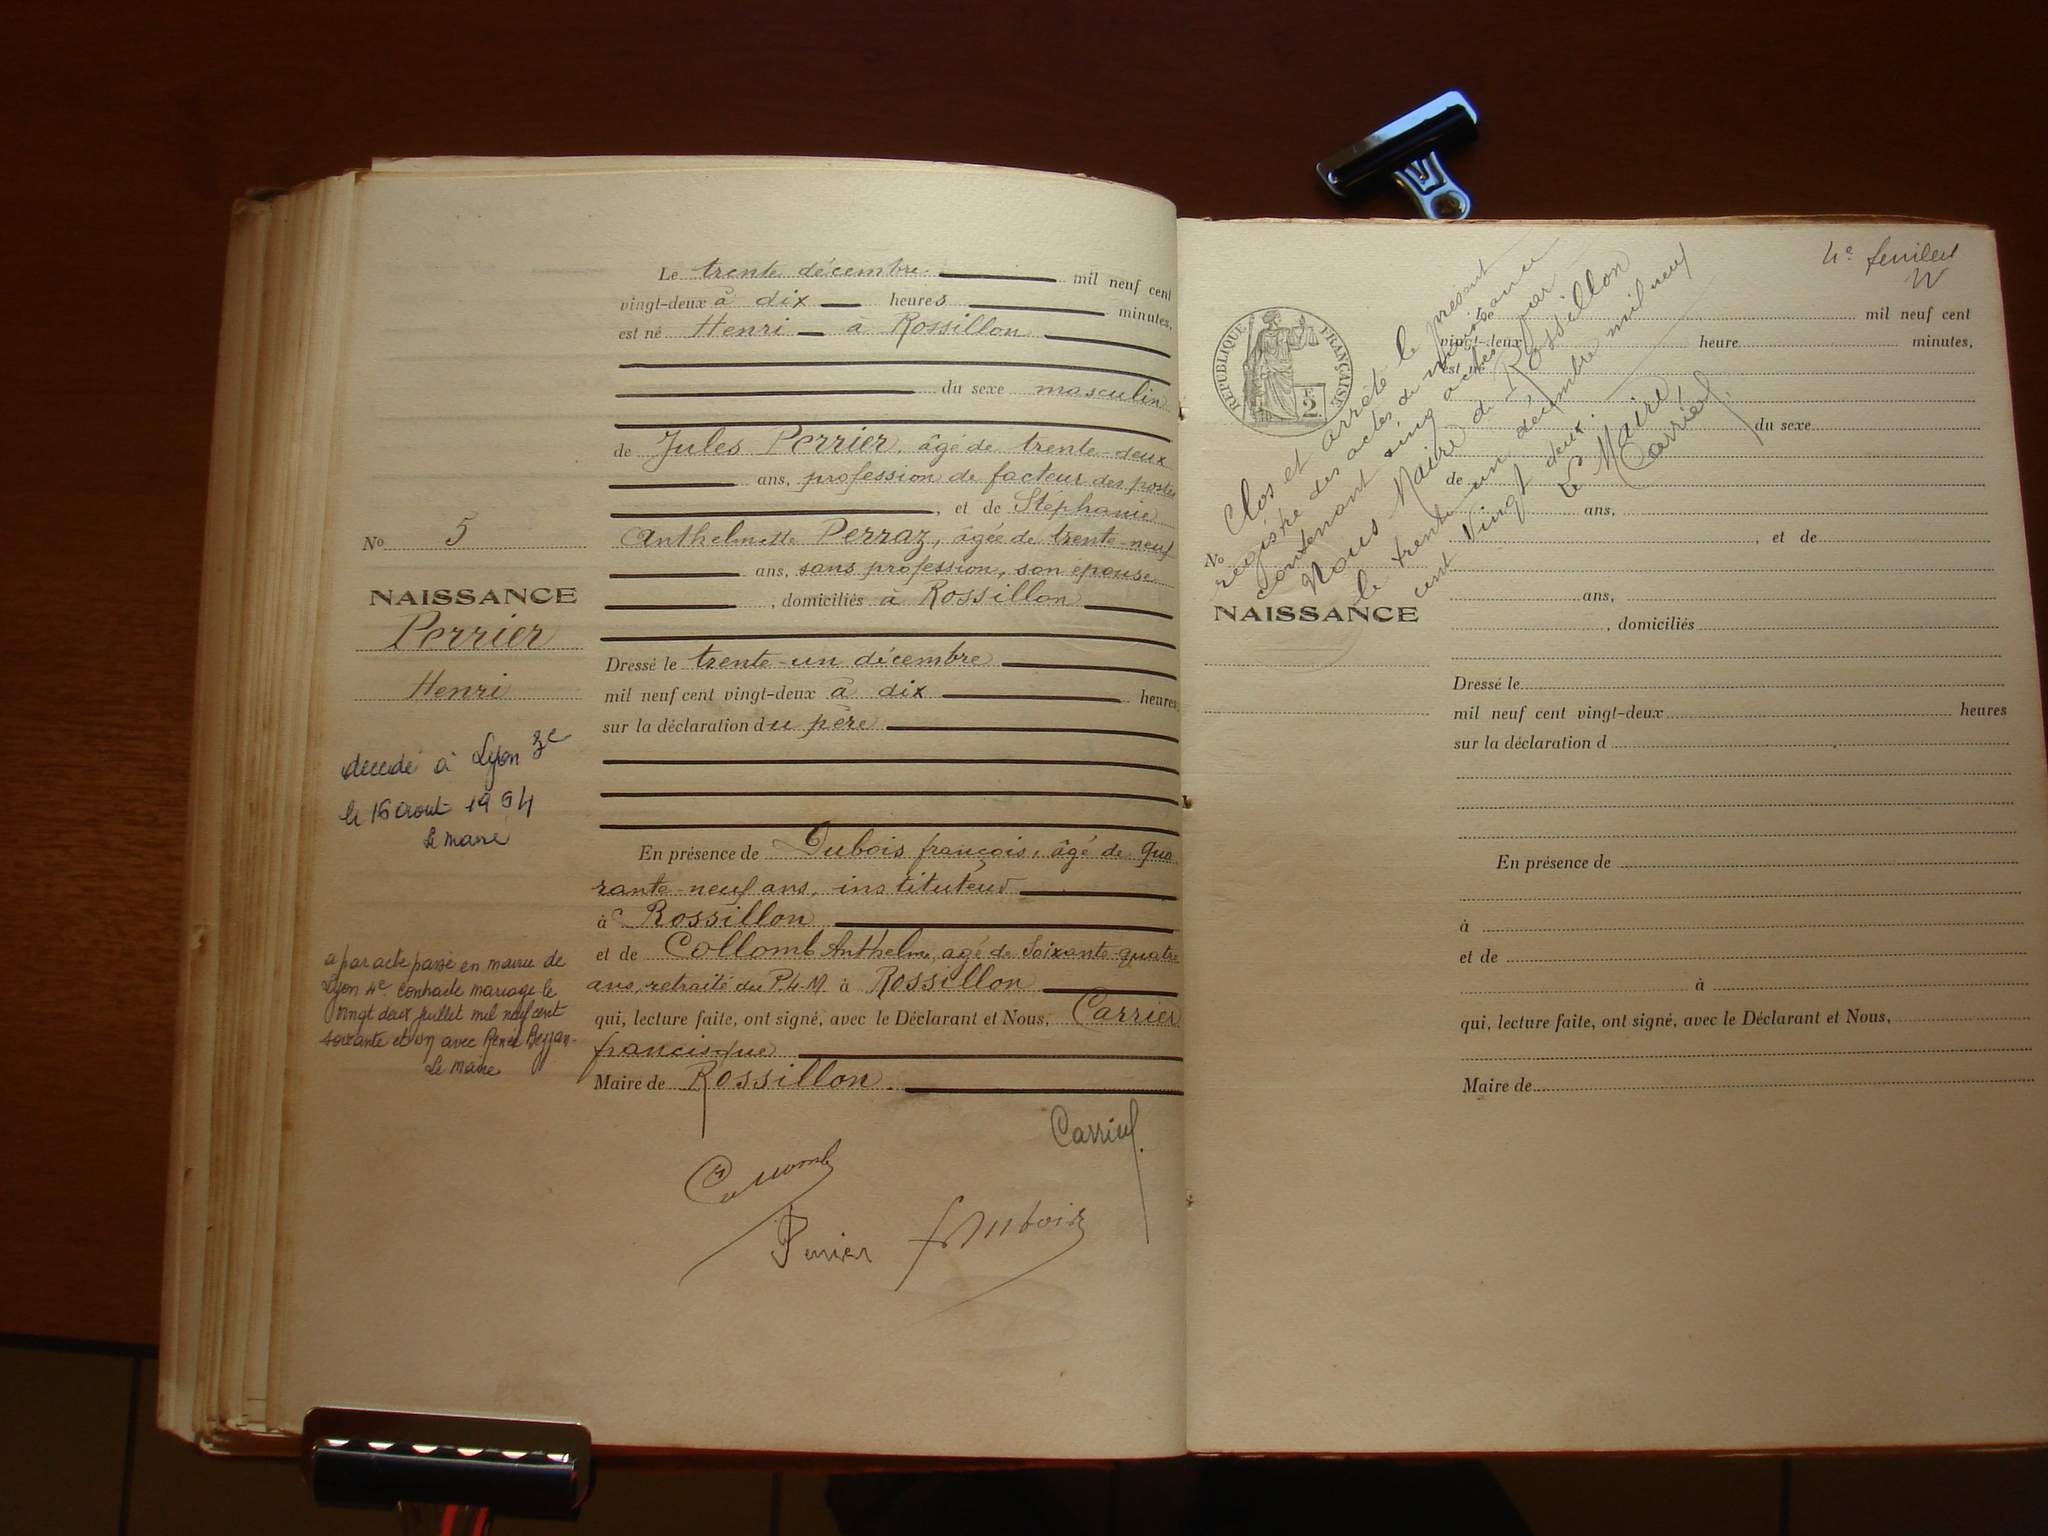 Le trente décembre mil neuf cent
vingt-deux à dix heures minutes,
est né Henri à Rossillon
du sexe masculin
de Jules Perrier, âgé de trente-deux
ans, profession de facteur des postes
, et de Stéphanie
Anthelmette Perraz, âgée de trente-neuf
ans, sans profession, son epouse
, domiciliés à Rossillon
Dressé le trente-un décembre
mil neuf cent vingt-deux à dix heures
sur la déclaration du père
En présence de Dubois françois, âgé de qua
rante-neuf ans, instituteur
à Rossillon
et de Collomb Anthelme, agé de Soixante-quatre
ans, retraité du P.L.M. à Rossillon
qui, lecture faite, ont signé, avec le Déclarant et Nous, Carrier
francisque
Maire de Rossillon.
Carrier
Collomb
Perrier
f Dubois
No 5
NAISSANCE
Perrier
Henri
décédé à Lyon 3e
le 16 aout 1994
Le maire
a par acte passé en mairie de
Lyon 4e contracté mariage le
vingt deux juillet mil neuf cent
soixante et un avec Renée
Le Maire
4e feuillet
RÉPUBLIQUE FRANÇAISE
2F
Clos et arrêté le présent
registre des actes de naissance
contenant cinq actes par
Nous Maire de Rossillon
le trente-un décembre mil neuf
cent vingt deux.
Le Maire,
Carrier
Le mil neuf cent
vingt-deux heure minutes,
est né
du sexe
de
ans,
, et de
ans,
, domiciliés
No
NAISSANCE
Dressé le
mil neuf cent vingt-deux heures
sur la déclaration d
En présence de
à
et de
à
qui, lecture faite, ont signé, avec le Déclarant et Nous,
Maire de